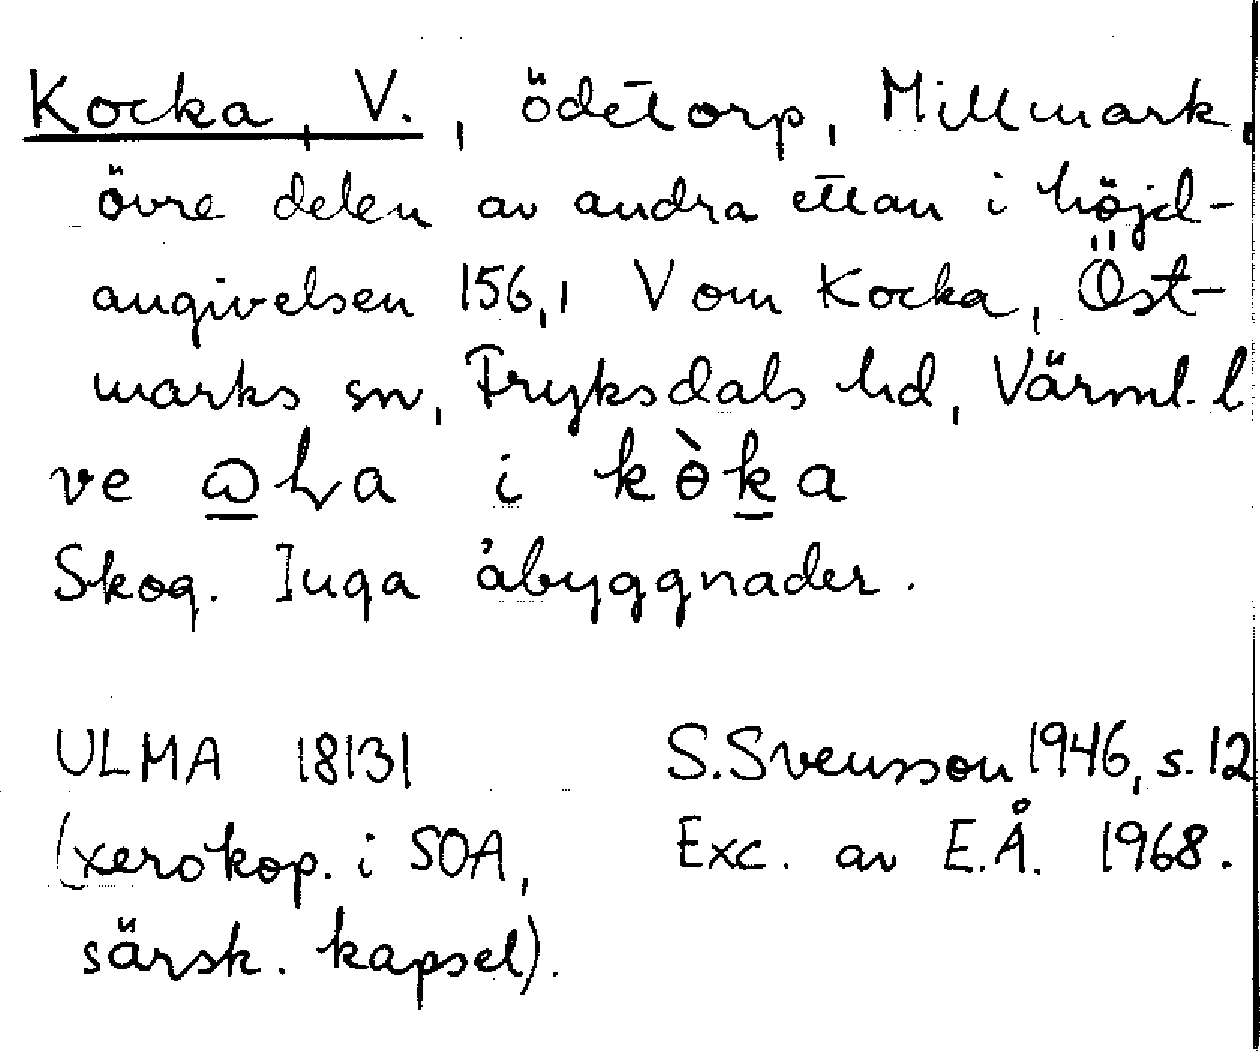 Kocka, V., ödetorp, Millmark,
övre delen av andra ettan i höjd-
angivelsen 156,1 V om Kocka, Öst-
marks sn, Fryksdals hd, Värml. l
ve i kò̀ka
Skog. Inga åbyggnader.
ULMA 18131 S. Svensson 1946, s. 12
(xerokop. i SOA, Exc. av E.Å. 1968.
särsk. kapsel).